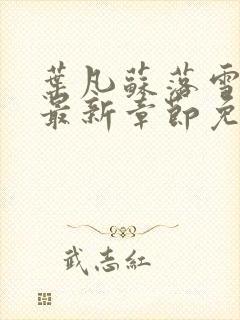 葉凡蘇落雪
最新章節免
武志紅